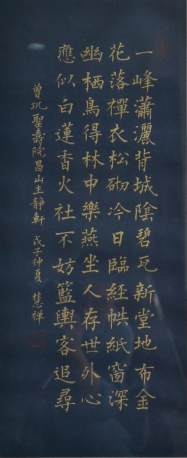 一峰瀟灑背城陰碧瓦新堂地布金
花落禪衣松砌冷日臨經帙紙窗深
幽栖鳥得林中樂燕坐人存世外心
應似白蓮香火社不妨籃輿客追尋
曾巩聖壽院昌山主靜軒 戊子仲夏 慧禪